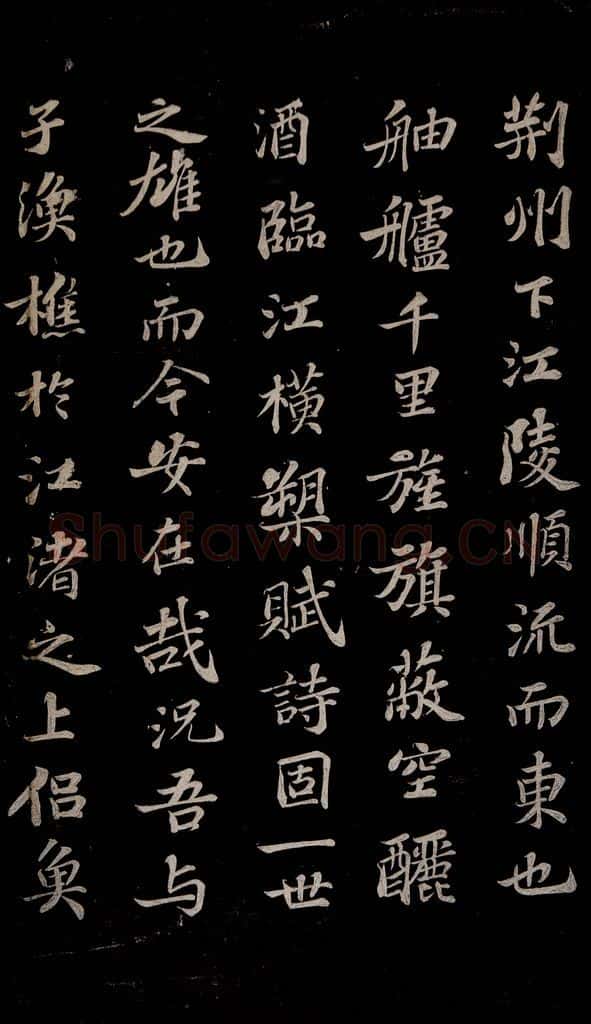 荆州下江陵順流而東也
舳艫千里旌旗蔽空釃
酒臨江橫槊賦詩固一世
之雄也而今安在哉況吾与
子漁樵於江渚之上侣魚
Shufawang.CN